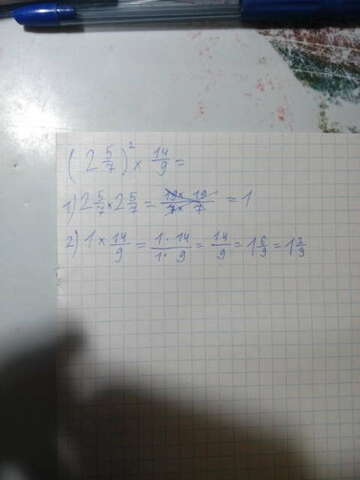 (2 5/7)² × 14/9 =
1) 2 5/7 × 2 5/7 = 19 × 19 / 7 × 7 = 1
2) 1 × 14/9 = 1 · 14 / 1 · 9 = 14/9 = 1 6/9 = 1 2/3